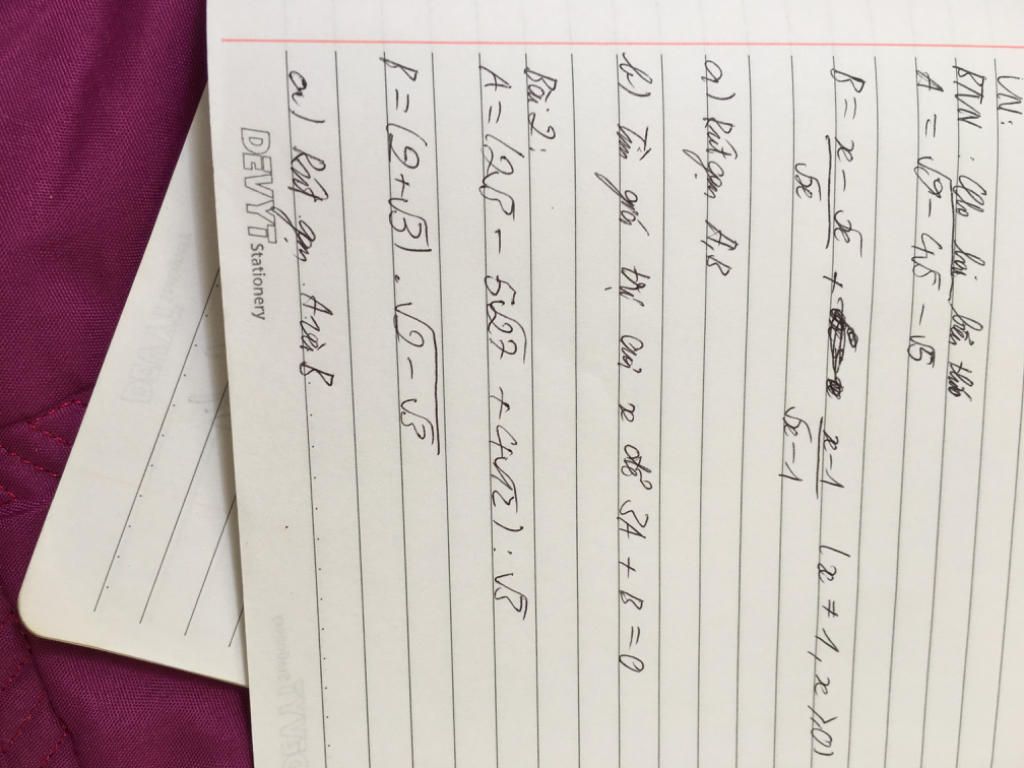 VN:
BTVN: Cho hai biểu thức
A = √9 - 4√5 - √5
B = x - √x / √x + x - 1 / √x - 1 (x ≠ 1, x > 0)
a) Rút gọn A, B
b) Tìm giá trị của x để 3A + B = 0
Bài 2:
A = (2√3 - 5√27 + 4√12) : √3
B = (2 + √3) . √2 - √3
a) Rút gọn A và B.
DEVYT Stationery